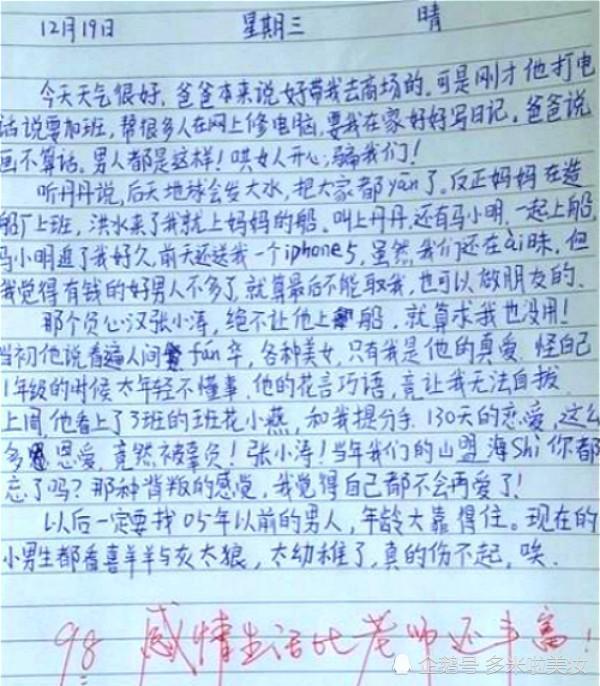 12月19日 星期三 晴
今天天气很好，爸爸本来说好带我去商场的，可是刚才他打电
话说要加班，帮很多人在网上修电脑，要我在家好好写日记。爸爸说
画不算话，男人都是这样！哄女人开心，骗我们！
听丹丹说，后天地球会发大水，把大家都yān了，反正妈妈在造
船厂上班，洪水来了我就上妈妈的船。叫上丹丹，还有马小明，一起上船，
马小明追了我好久，前天还送我一个iphone5，虽然，我们还在ài昧，但
我觉得有钱的好男人不多了，就算最后不能取我，也可以做朋友的。
那个负心汉张小涛，绝不让他上船，就算求我也没用！
当初他说看遍人间fán华，各种美女，只有我是他的真爱，怪自己
1年级的时候太年轻不懂事，他的花言巧语，竟让我无法自拔
上周，他看上了3班的班花小燕，和我提分手，130天的恋爱，这么
多恩爱，竟然被辜负！张小涛！当年我们的山盟海Shi你都
忘了吗？那种背叛的感觉，我觉得自己都不会再爱了！
以后一定要找05年以前的男人，年龄大靠得住。现在的
小男生都看喜羊羊与灰太狼，太幼稚了，真的伤不起，唉．
98 感情生活比老师还丰富！
企鹅号 多米啦美妆